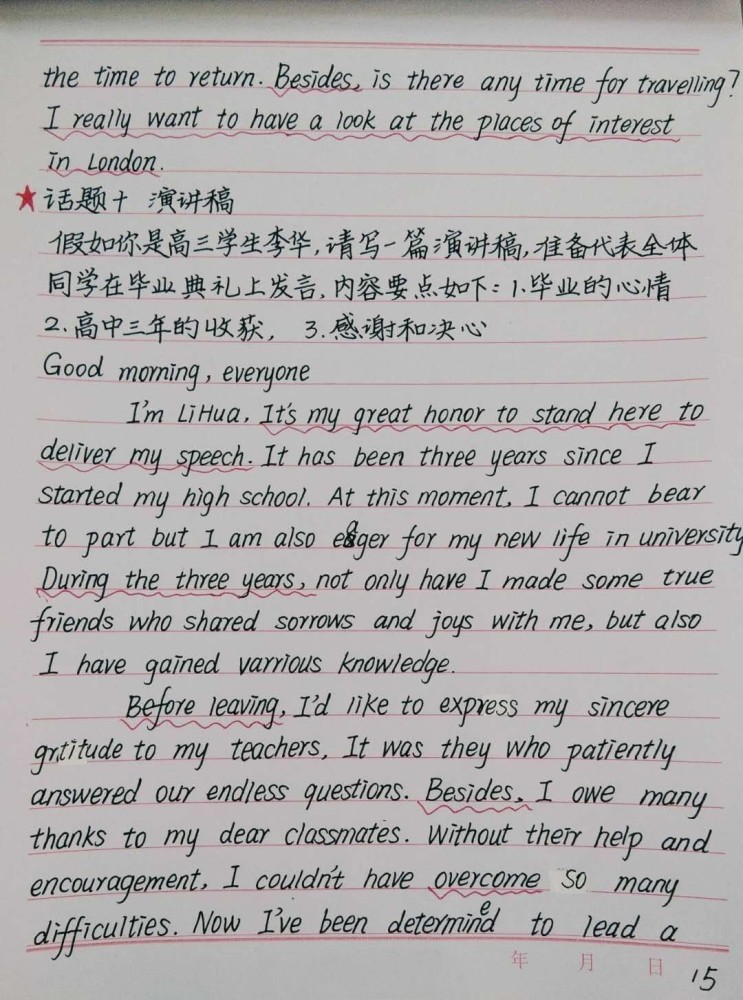 the time to return. Besides, is there any time for travelling?
I really want to have a look at the places of interest
in London.
★ 话题十 演讲稿
假如你是高三学生李华,请写一篇演讲稿,准备代表全体
同学在毕业典礼上发言,内容要点如下: 1.毕业的心情
2.高中三年的收获, 3.感谢和决心
Good morning, everyone
I'm LiHua. It's my great honor to stand here to
deliver my speech. It has been three years since I
started my high school. At this moment, I cannot bear
to part but I am also eager for my new life in university
During the three years, not only have I made some true
friends who shared sorrows and joys with me, but also
I have gained varrious knowledge.
Before leaving, I'd like to express my sincere
grtitude to my teachers, It was they who patiently
answered our endless questions. Besides, I owe many
thanks to my dear classmates. Without their help and
encouragement, I couldn't have overcome so many
difficulties. Now I've been determined to lead a
年 月 日
15